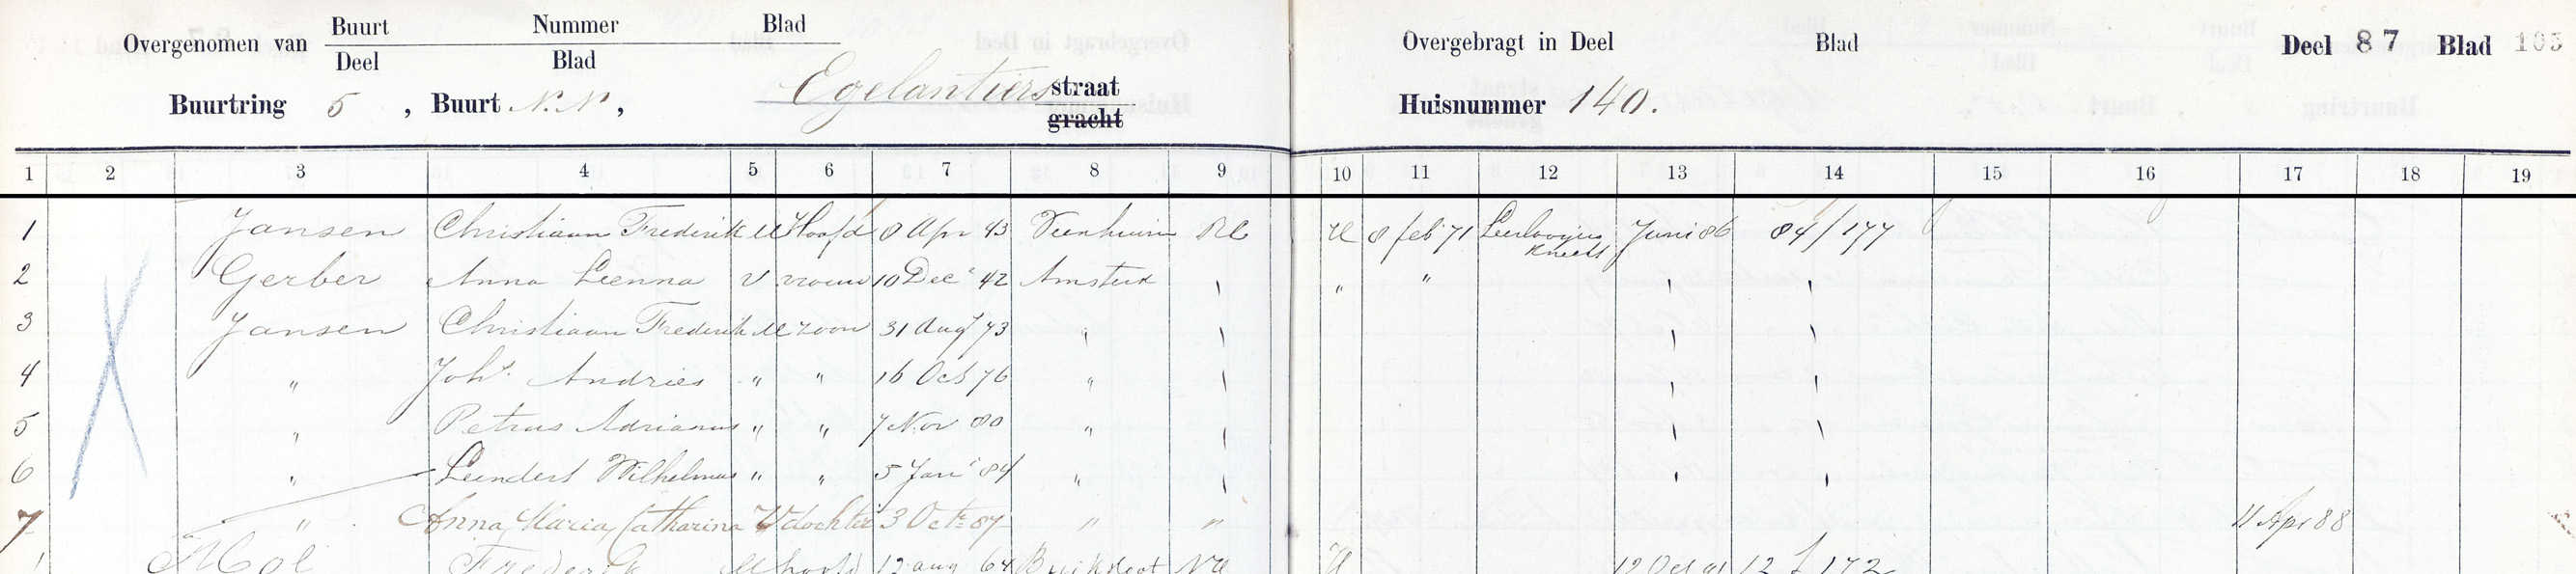 Overgenomen van Buurt Nummer Blad
Deel Blad
Buurtring 5, Buurt N.N, Egelantiers straat
gracht
Overgebragt in Deel Blad Deel 87 Blad 105
Huisnummer 140.
1 2 3 4 5 6 7 8 9 10 11 12 13 14 15 16 17 18 19
1 Jansen Christiaan Frederik M Hoofd 8 Apr 43 Veenhuizen RC H 8 feb 71 Leerlooijers Knecht Juni 86 84/177
2 Gerber Anna Leenna V vrouw 10 Dec 42 Amsterd " "
3 Jansen Christiaan Frederik M zoon 31 Aug 73 "
4 " Joh.s Andries " " 16 Oct 76 "
5 " Petrus Adrianus " " 7 Nov 80 "
6 " Leendert Wilhelmus " " 5 Jan 84 "
7 " Anna Maria Catharina V dochter 3 Oct 87 " " 11 Apr 88
1 Mol Frederik M hoofd 12 aug 64 Buiksloot NH H 12 Oct 91 12 f 172